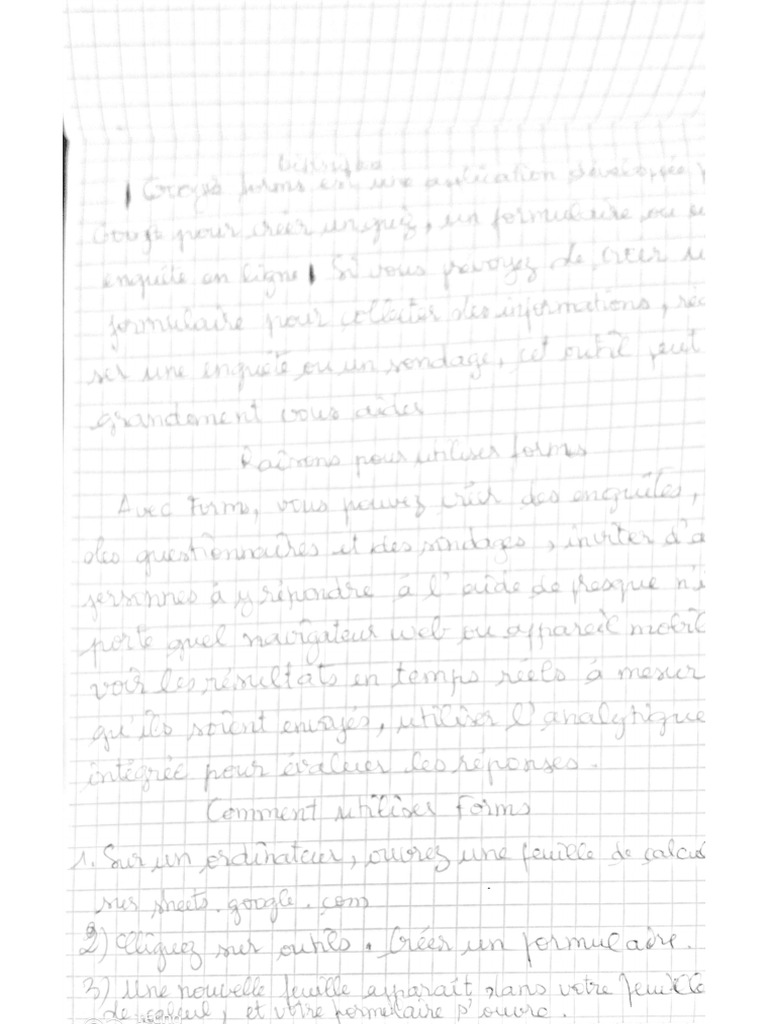 Définition
Google forms est une application développée
Google pour créer un quiz, un formulaire ou
enquête en ligne. Si vous prévoyez de créer
formulaire pour collecter des informations,
ser une enquête ou un sondage, cet outil peut
grandement vous aider
Raisons pour utiliser forms
Avec Forms, vous pouvez créer des enquêtes,
des questionnaires et des sondages, inviter d'a
personnes à y répondre à l'aide de presque n'i
porte quel navigateur web ou appareil mobil
voir les résultats en temps réels à mesur
qu'ils soient envoyés, utiliser l'analytique
intégrée pour évaluer les réponses.
Comment utiliser Forms
1. Sur un ordinateur, ouvrez une feuille de calcul
sur sheets.google.com
2) Cliquez sur outils. Créer un formulaire.
3) Une nouvelle feuille apparait dans votre feuille
de calcul, et votre formulaire s'ouvre.